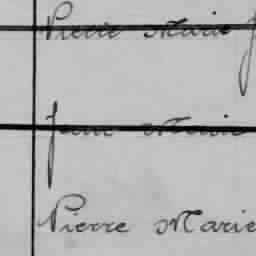 Pierre Marie J
Jean Marie
Pierre Marie